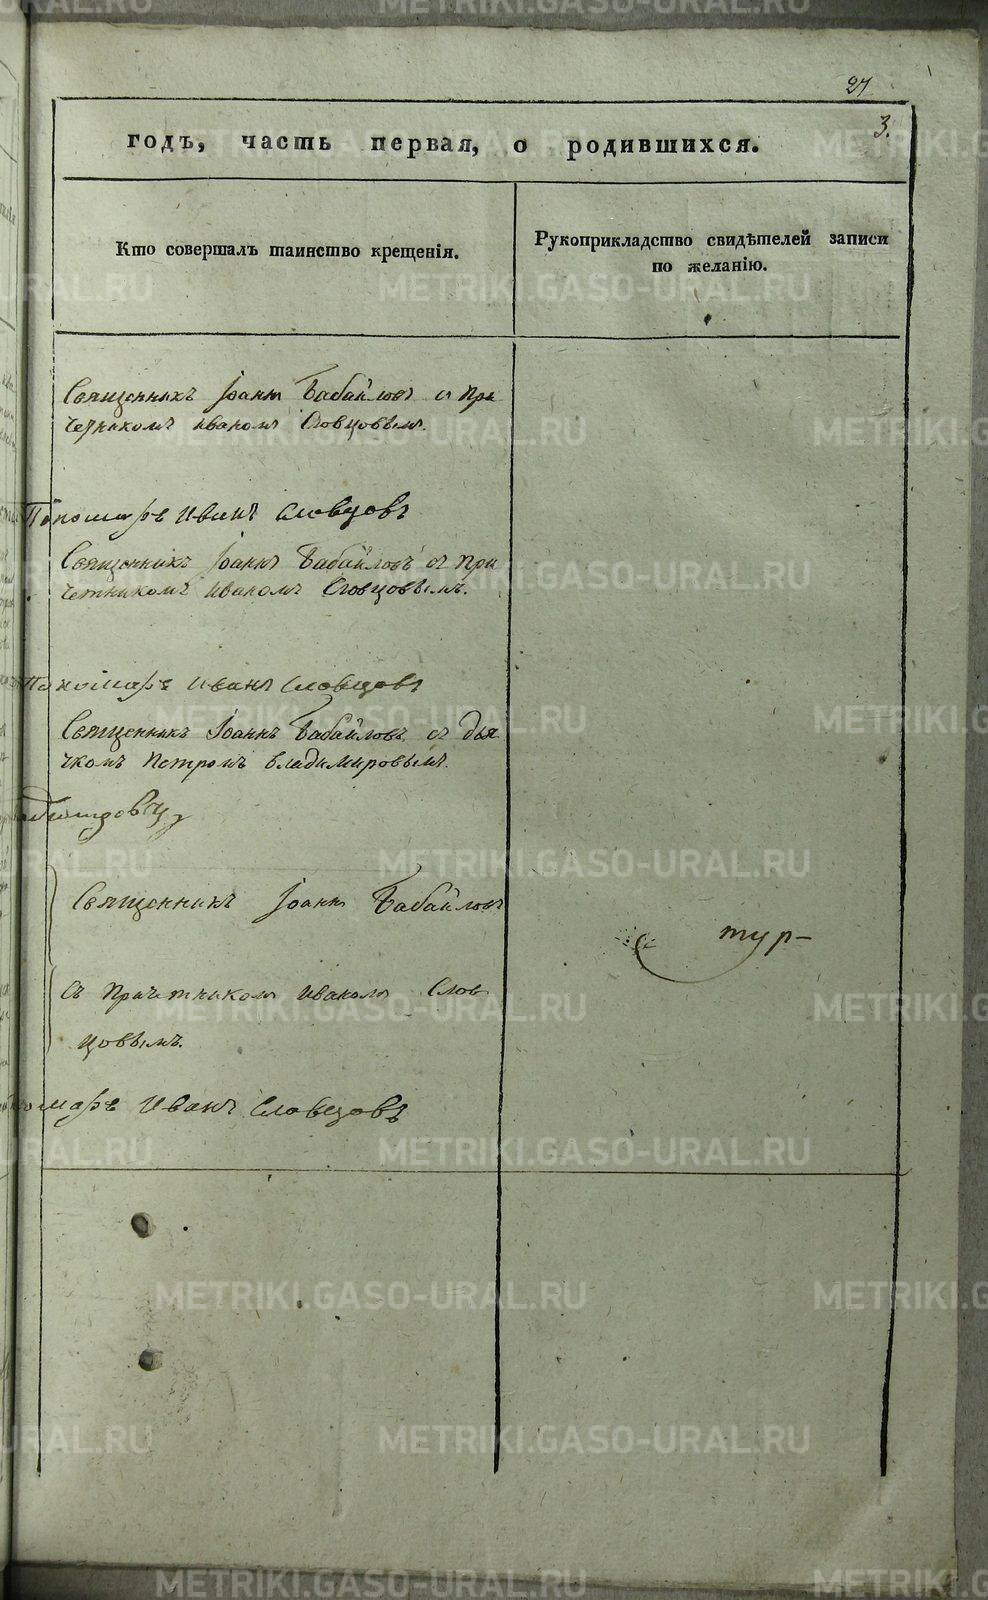 27
3.
годъ, часть первая, о родившихся.
Кто совершалъ таинство крещенія.
Рукоприкладство свидѣтелей записи
по желанію.
Священникъ Іоаннъ Бабайловъ съ при
четникомъ Иваномъ Словцовымъ.
Пономарь Иванъ Словцовъ
Священникъ Іоаннъ Бабайловъ съ при
четникомъ Иваномъ Словцовымъ.
Пономарь Иванъ Словцовъ
Священникъ Іоаннъ Бабайловъ съ дья
чкомъ Петромъ Владимировымъ.
Священникъ Іоаннъ Бабайловъ
съ причетникомъ Иваномъ Слов
цовымъ.
номарь Иванъ Словцовъ
тур-
METRIKI.GASO-URAL.RU